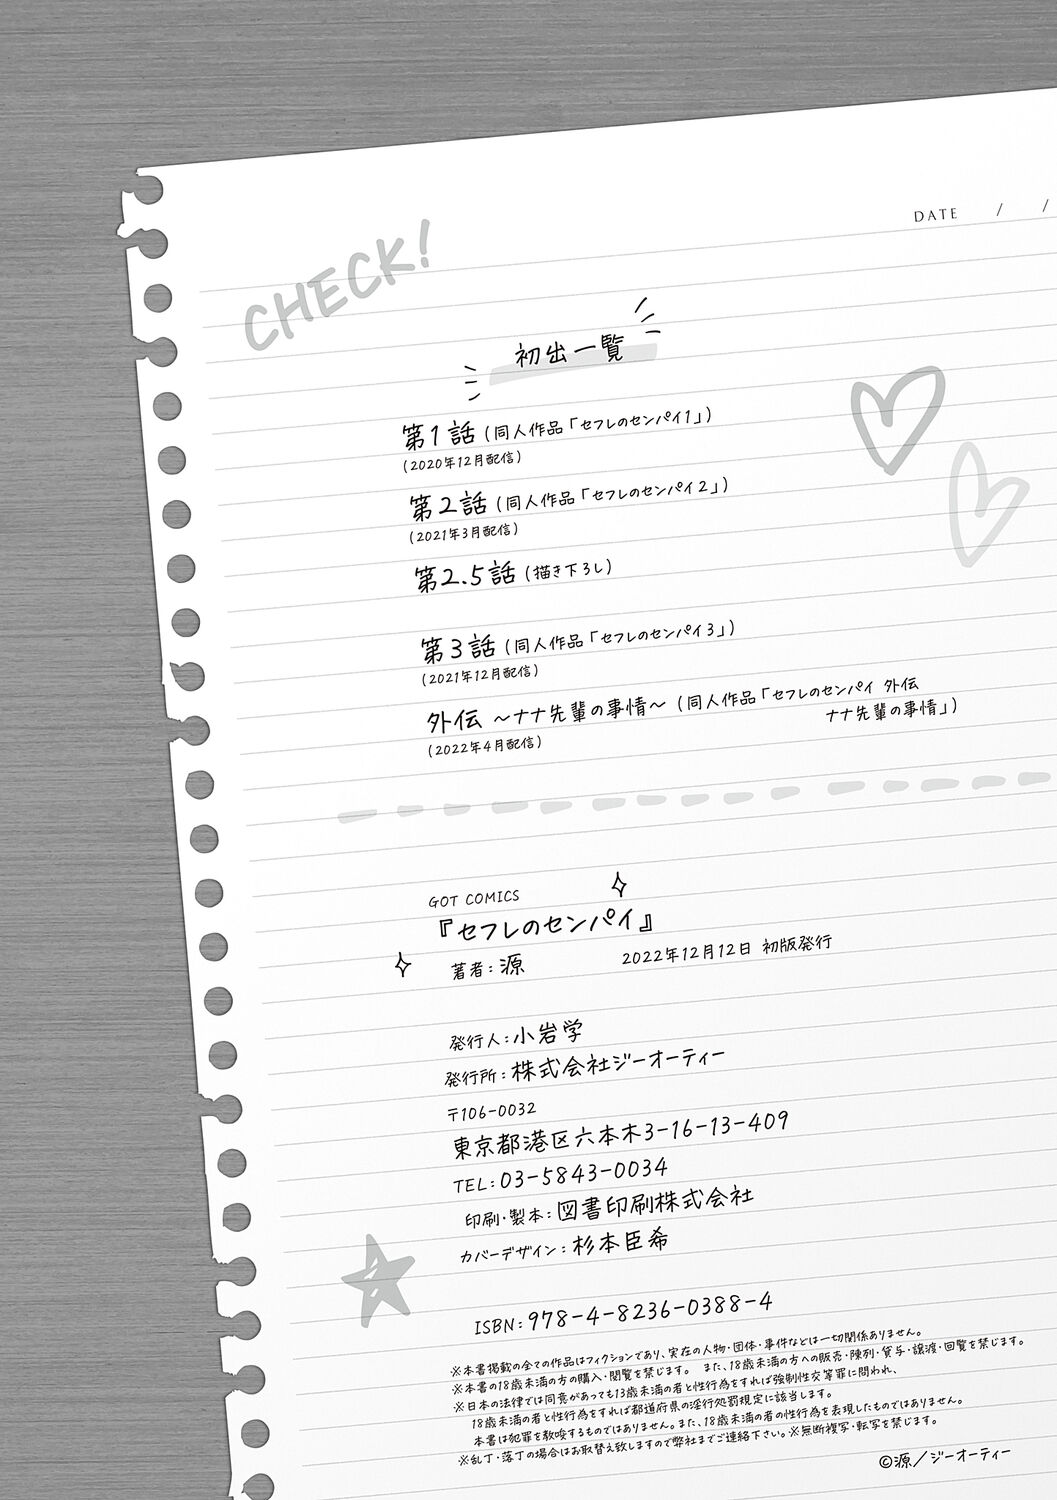 DATE / /
CHECK!
初出一覧
第1話（同人作品「セフレのセンパイ1」）
（2020年12月配信）
第2話（同人作品「セフレのセンパイ2」）
（2021年3月配信）
第2.5話（描き下ろし）
第3話（同人作品「セフレのセンパイ3」）
（2021年12月配信）
外伝 〜ナナ先輩の事情〜（同人作品「セフレのセンパイ 外伝
ナナ先輩の事情」）
（2022年4月配信）
GOT COMICS
『セフレのセンパイ』
著者：源 2022年12月12日 初版発行
発行人：小岩学
発行所：株式会社ジーオーティー
〒106-0032
東京都港区六本木3-16-13-409
TEL：03-5843-0034
印刷・製本：図書印刷株式会社
カバーデザイン：杉本臣希
ISBN：978-4-8236-0388-4
※本書掲載の全ての作品はフィクションであり、実在の人物・団体・事件などは一切関係ありません。
※本書の18歳未満の方の購入・閲覧を禁じます。 また、18歳未満の方への販売・陳列・貸与・譲渡・回覧を禁じます。
※日本の法律では同意があっても13歳未満の者と性行為をすれば強制性交等罪に問われ、
18歳未満の者と性行為をすれば都道府県の淫行処罰規定に該当します。
本書は犯罪を教唆するものではありません。また、18歳未満の者の性行為を表現したものではありません。
※乱丁・落丁の場合はお取替え致しますので弊社までご連絡下さい。※無断複写・転写を禁じます。
©源／ジーオーティー